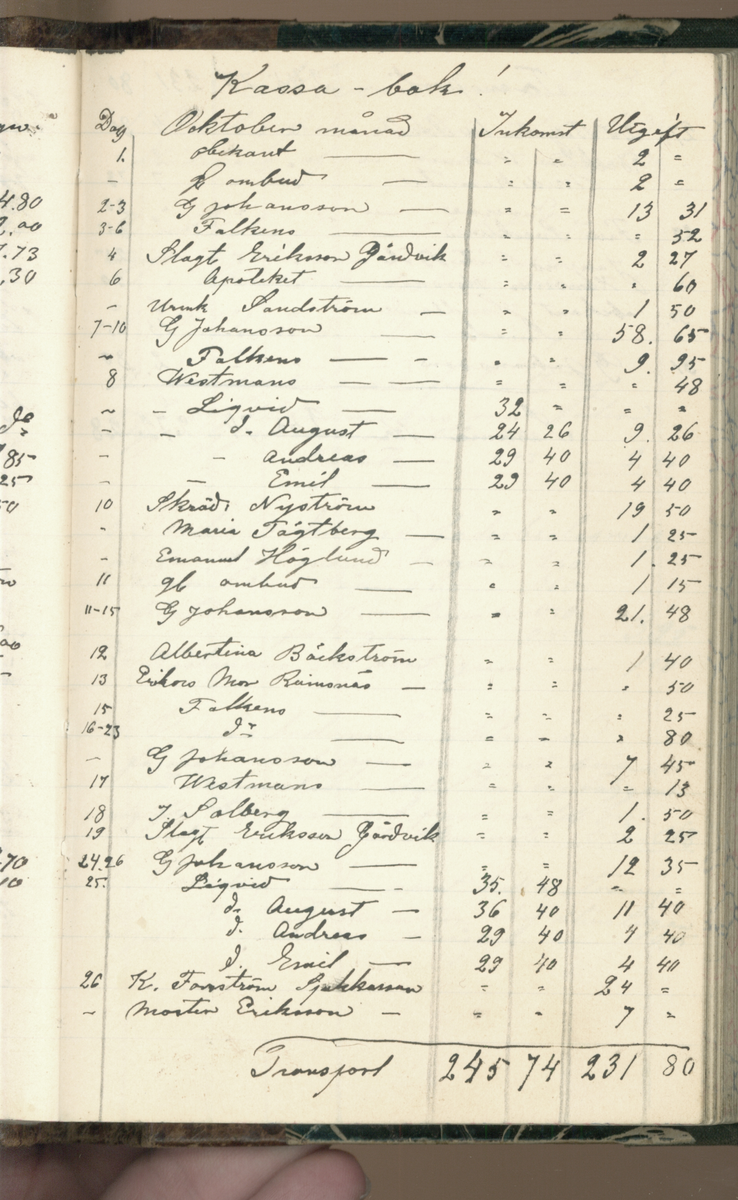 Kassa-bok!
Dag Ocktober månad Inkomst Utgift
1. obekant — " " 2 "
- ombud — " " 2 "
2-3 G Johansson — " " 13 31
3-6 Falkens — " " " 52
4 Slagt Eriksson Gärdvik " " 2 27
6 Apoteket — " " " 60
- Sandström — " " 1 50
7-10 G Johansson — " " 58. 65
~ Falkens — - " " 9. 95
8 Westmans — — " " " 48
~ - Liqvid — 32 " " "
- - d. August — 24 26 9. 26
- - Andreas — 29 40 4 40
- - Emil — 29 40 4 40
10 Skräd. Nyström " " 19 50
" Maria Tägtberg — " " 1 25
- Emanuel Höglund - " " 1. 25
11 gb ombud — " " 1 15
11-15 G Johansson — " " 21. 48
12 Albertina Bäckström " " 1 40
13 Mor — " " " 50
15 Falkens — " " " 25
16-23 do — " " " 80
- G Johansson — " " 7 45
17 Westmans — " " " 13
18 J. Solberg — " " 1. 50
19 Slagt Eriksson Gärdvik " " 2 25
24.26 G Johansson — " " 12 35
25. Liqvid — - 35. 48 " "
d. August — 36 40 11 40
d. Andreas - 29 40 4 40
d. Emil — 29 40 4 40
26 K. Sjukkassan " " 24 "
~ Eriksson - " " 7 "
Transport 245 74 231 80